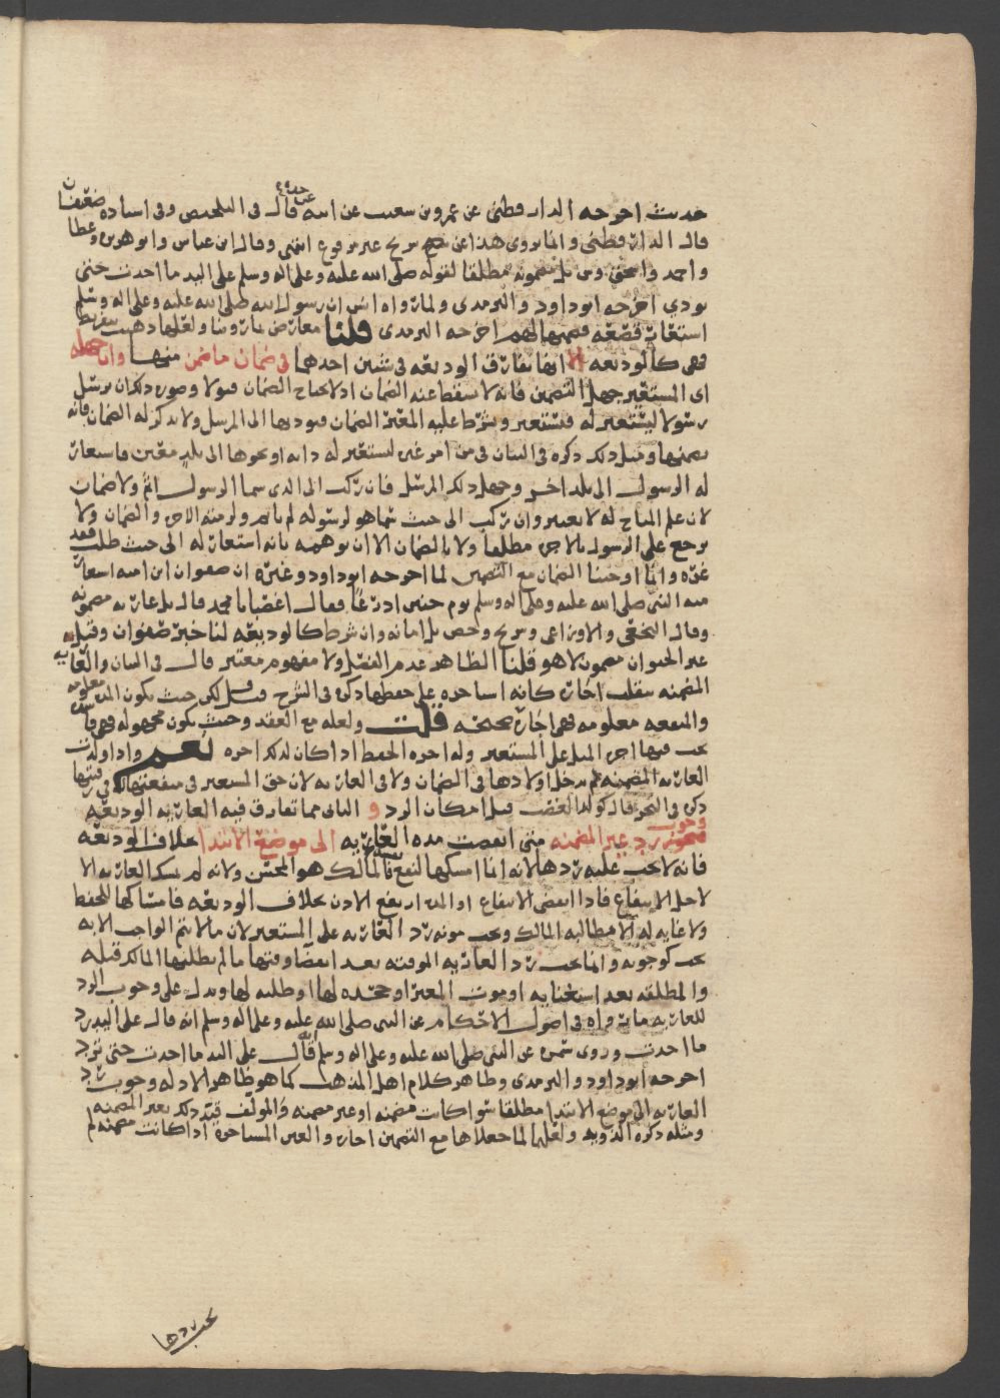 حديث اخرجه الدارقطني عن عمرو بن شعيب عن ابيه عن جده قال في التلخيص وفي اسناده ضعيفان
قال الدارقطني وانما يروى هذا عن شريح غير مرفوع انتهى وقال ابن عباس وابو هريرة وعطا
واحمد واسحق ومن بل مضمونه مطلقا لقوله صلى الله عليه وعلى اله وسلم على اليد ما اخذت حتى
تودي اخرجه ابو داود والترمذي ولما رواه انس ان رسول الله صلى الله عليه وعلى اله وسلم
استعار قصعة فضمنها لهم اخرجه الترمذي قلنا معارض بما روينا ولعلها ذهبت بتفريط
فهي كالوديعه الا انها تفارق الوديعه في شيئين احدهما في ضمان ما ضمن منها وان جهله
اي المستعير جهل التضمين فانه لا يسقط عنه الضمان اذ لا يحتاج الضمان قبولا وصورة ذلك ان يرسل
رسولا ليستعير له فيستعير ويشرط عليه المعير الضمان فيوديها الى المرسل ولا يذكر له الضمان فانه
يضمنها ومثل ذلك ذكره في البيان في من امر غيره ليستعير له دابه او نحوها الى بلد معين فاستعار
له الرسول الى بلد اخر وجهل ذلك المرسل فان ركب الى الذي سما الرسول اثم ولا ضمان
لان علم المباح له لا يعتبر وان ركب الى حيث سما هو لرسوله لم ياثم ولزمته الاجره والضمان ولا
يرجع على الرسول بالاجره مطلقا ولا بالضمان الا ان يوهمه بانه استعار له الى حيث طلب فقد
غره وانما اوجبنا الضمان مع التضمين لما اخرجه ابو داود وغيره ان صفوان ابن اميه استعار
منه النبي صلى الله عليه وعلى اله وسلم يوم حنين ادرعا فقال اغصبا يا محمد قال بل عاريه مضمونه
وقال النخعي والاوزاعي وشريح وحص بل امانه وان شرط كالوديعه لنا خبر صفوان وقيل به
غير الحيوان مضمون لا هو قلنا الظاهر عدم الفصل ولا مفهوم معتبر قال في البيان والعاريه
المضمنه تنقلب اجاره كانه استاجره على حفظها ذكره في الشرح قيل لكن حيث يكون المده معلومه
والمنفعه معلومه فهي اجاره صحيحه قلت ولعله مع العقد وحيث يكون مجهوله فهي فاسده
يجب فيها اجره المثل على المستعير وله اجره الحفظ اذا كان لذلك اجره نعم واذا ولدت
العاريه المضمنه لم يدخل اولادها في الضمان ولا في العاريه لان حق المستعير في منفعتها لا في رقبتها
ذكره في البحر قال كولد الغصب قبل امكان الرد و الثاني مما تفارق فيه العاريه الوديعه
وجوب رد غير المضمنه متى انقضت مدة العاريه الى موضع الابتدا بخلاف الوديعه
فانه لا يجب عليه ردها لانه انما امسكها لنفع المالك فالمالك هو المحسن ولانه لم يمسك العاريه الا
لاجل الانتفاع فاذا انقضى الانتفاع او المده ارتفع الاذن بخلاف الوديعه فامساكها للحفظ
ولا غايه له الا مطالبه المالك ويجب مونه رد العاريه على المستعير لان ما لا يتم الواجب الا به
يجب كوجوبه وانما يجب رد العاريه الموقته بعد انقضا وقتها ما لم يطلبها المالك قبله
والمطلقه بعد استغنايه او موت المعير او جحده لها او طلبه لها ويدل على وجوب الرد
للعاريه ما رواه في اصول الاحكام عن النبي صلى الله عليه وعلى اله وسلم انه قال على اليد رد
ما اخذت وروى سمره عن النبي صلى الله عليه وعلى اله وسلم انه قال على اليد ما اخذت حتى ترد
اخرجه ابو داود والترمذي وظاهر كلام اهل المذهب كما هو ظاهر الادله وجوب رد
العاريه الى موضع الابتدا مطلقا سوا كانت مضمنه او غير مضمنه والمولف قيد ذلك بغير المضمنه
ومثله ذكره الدويد ولعلهما لما جعلاها مع التضمين اجاره والعين المستاجره اذا كانت مضمنه لم
يجب ردها